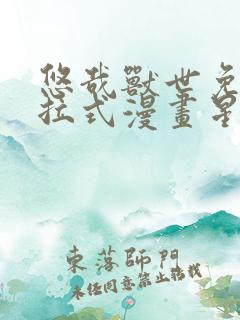 悠哉獸世免
拉式漫畫星
東落師門
未经同意禁止转载